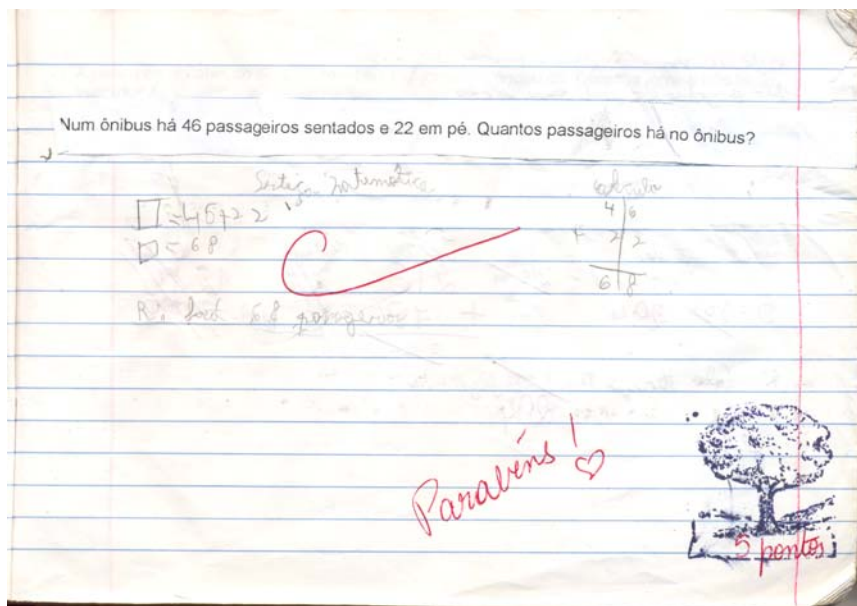 Num ônibus há 46 passageiros sentados e 22 em pé. Quantos passageiros há no ônibus?
Sentença Matemática
cálculo
□ = 46+22
□ = 68
4 6
+ 2 2
6 8
R. 68 passageiros
Parabéns! ♡
5 pontos